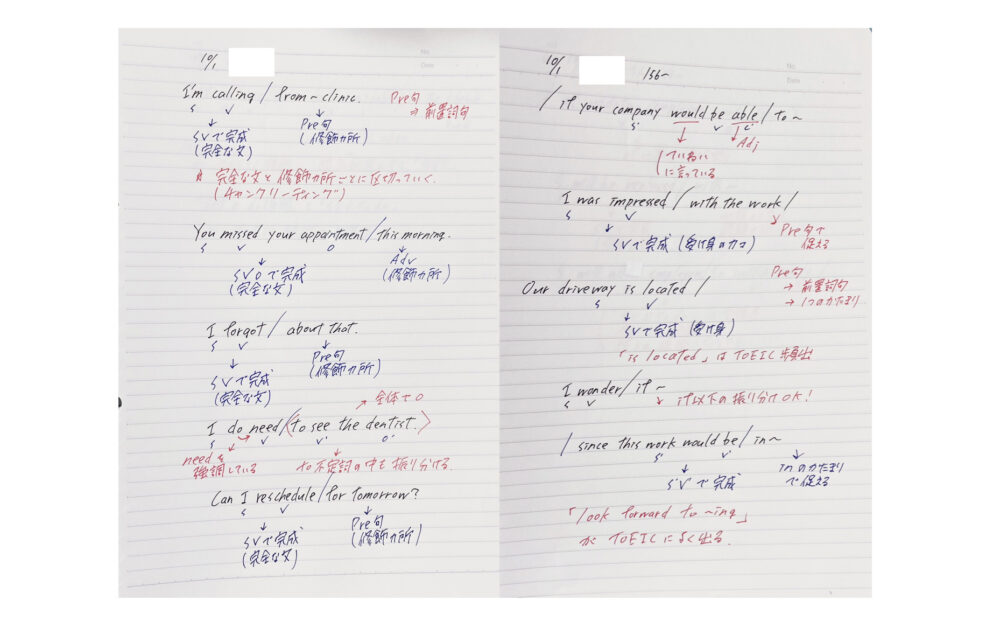 10/1
I'm calling / from ~ clinic.
Pre句
→ 前置詞句
S V
SVで完成
(完全な文)
Pre句
(修飾カ所)
☆ 完全な文と修飾カ所ごとに区切っていく。
(チャンクリーディング)
You missed your appointment / this morning.
S V O
SVOで完成
(完全な文)
Adv
(修飾カ所)
I forgot / about that.
S V
SVで完成
(完全な文)
Pre句
(修飾カ所)
→ 全体でO
I do need / 〈to see the dentist.〉
S V V' O'
needを
強調している
to不定詞の中も振り分ける.
Can I reschedule / for tomorrow?
S V
SVで完成
(完全な文)
Pre句
(修飾カ所)
10/1
156~
No.
Date
/ if your company would be able / to ~
S' V C'
→ Adj
ていねいに
に言っている
I was impressed / with the work /
S V
SVで完成 (受け身のカタチ)
Pre句で
捉える
Our driveway is located /
S V
SVで完成 (受け身)
Pre句
→ 前置詞句
→ 1つのかたまり
「is located」は TOEIC 頻出
I wonder / if ~
S V
if以下の振り分けOK!
/ since this work would be / in ~
S' V'
S'V'で完成
inのかたまり
で捉える
「look forward to ~ing」
が TOEICによく出る.